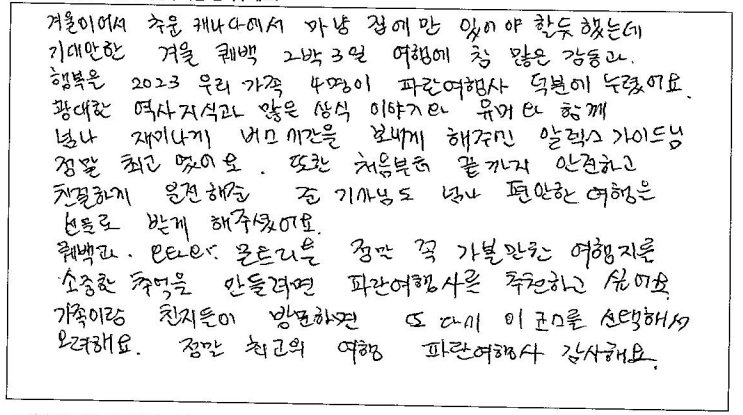 겨울이어서 추운 캐나다에서 마냥 집에만 있어야 할듯 했는데
기대만한 겨울 퀘백 2박3일 여행에 참 많은 감동과.
행복을 2023 우리 가족 4명이 파란여행사 덕분에 누렸어요.
광대한 역사지식과 많은 상식 이야기와 유머와 함께
넘나 재미나게 버스시간을 보내게 해주신 알렉스 가이드님
정말 최고였어요. 또한 처음부터 끝까지 안전하고
친절하게 운전해준 준 기사님도 넘나 편안한 여행을
선물로 받게 해주셨어요.
퀘백과. 오타와. 몬트리올 정말 꼭 가볼만한 여행지를
소중한 추억을 만들려면 파란여행사를 추천하고 싶어요
가족이랑 친지들이 방문하면 또 다시 이 코스를 선택해서
오려해요. 정말 최고의 여행 파란여행사 감사해요.